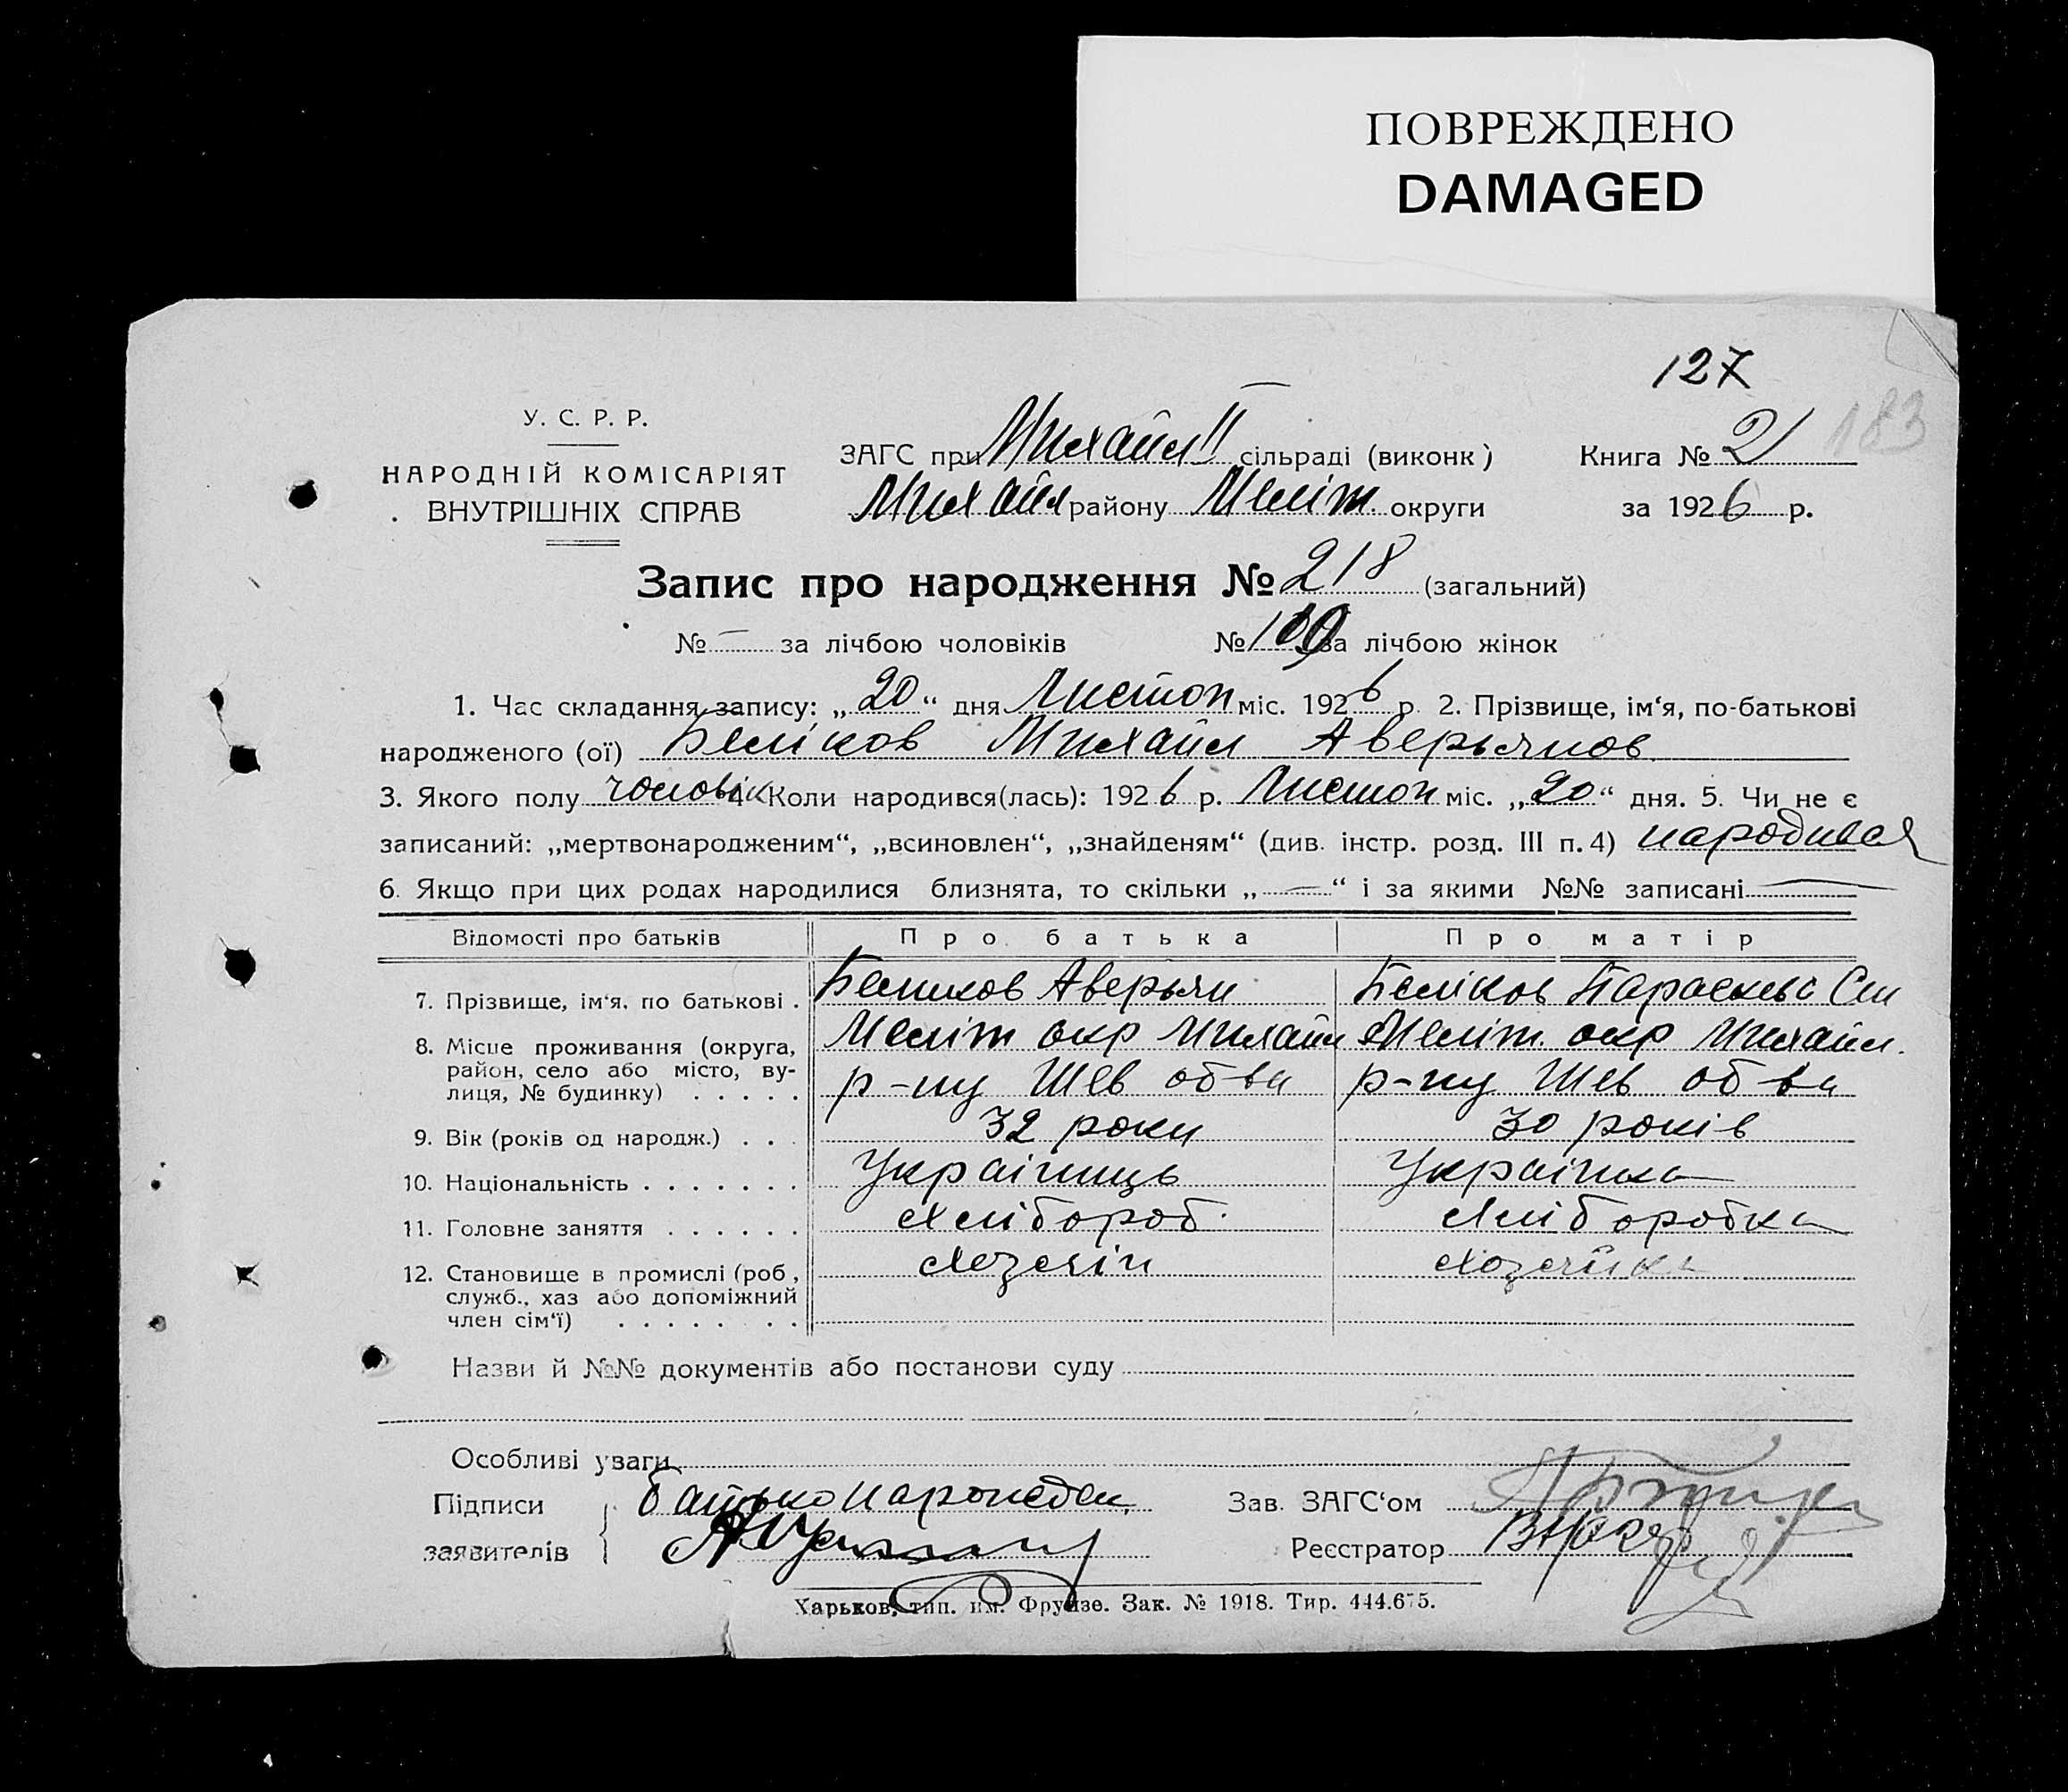 ПОВРЕЖДЕНО
DAMAGED
127
183
У. С. Р. Р.
НАРОДНІЙ КОМІСАРІЯТ
ВНУТРІШНІХ СПРАВ
ЗАГС при Михайл II сільраді (виконк)
Михайл району Меліт. округи
Книга № 2
за 1926 р.
Запис про народження № 218 (загальний)
№ — за лічбою чоловіків № за лічбою жінок
1. Час складання запису: „20“ дня Листоп міс. 1926 р. 2. Прізвище, ім‘я, по-батькові
народженого (ої) Беліков Михайл Аверьянов
3. Якого полу чоловік 4. Коли народився(лась): 1926 р. Листоп міс. „20“ дня. 5. Чи не є
записаний: „мертвонародженим“, „всиновлен“, „знайденям“ (див. інстр. розд. III п. 4) народився
6. Якщо при цих родах народилися близнята, то скільки „—“ і за якими №№ записані —
Відомості про батьків Про батька Про матір
7. Прізвище, ім‘я, по батькові . Беликов Аверьян Беліков Параскева Сем
8. Місце проживання (округа, район, село або місто, вулиця, № будинку) . . . . . Меліт окр Михайл р-ну Шев об-ва Меліт. окр Михайл. р-ну Шев об-ва
9. Вік (років од народж.) . . . 32 роки 30 років
10. Національність . . . . . . . Українець Українка
11. Головне заняття . . . . . . Хлібороб. Хліборобка
12. Становище в промислі (роб, служб., хаз або допоміжний член сім‘ї) . . . . . . . Хозяїн Хозяйка
Назви й №№ документів або постанови суду
Особливі уваги
Підписи заявителів { батько народжен.
Зав. ЗАГС‘ом
Реєстратор
Харьков, тип. им. Фрунзе. Зак. № 1918. Тир. 444.675.